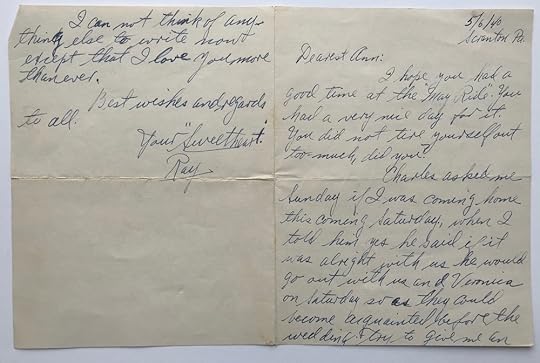 5/6/40
Scranton Pa.
Dearest Ann:
I hope you had a
good time at the "May Ride". You
had a very nice day for it.
You did not tire yourself out
too much, did you?
Charles asked me
Sunday if I was coming home
this coming Saturday, when I
told him yes he said if it
was alright with us he would
go out with us and Veronica
on Saturday so as they could
become acquainted before the
wedding. Try to give me an
I can not think of any-
thing else to write now
except that I love you more
than ever.
Best wishes and regards
to all.
Your "Sweetheart"
Ray